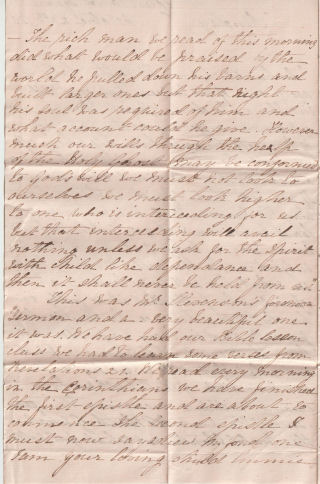 - The rich man we read of this morning
did what would be praised by the
world he pulled down his barns and
built larger ones but that night
his soul was required of him and
what account could he give. However
much our wills through the help
of the Holy Ghost may be conformed
to God's will we must not look to
ourselves we must look higher
to one who is interceeding for us
but that interceeding will avail
nothing unless we ask for the Spirit
with child like dependance and
then it shall never be held from us"
This was Mr Stevensons forenoon
sermon and a very beautiful one
it was. We have had our Bible lesson
class we had to learn some verses from
revelations 21. We read every morning
in the Corinthians we have finished
the first epistle and are about to
commence the second epistle I
must now
I am your loving child